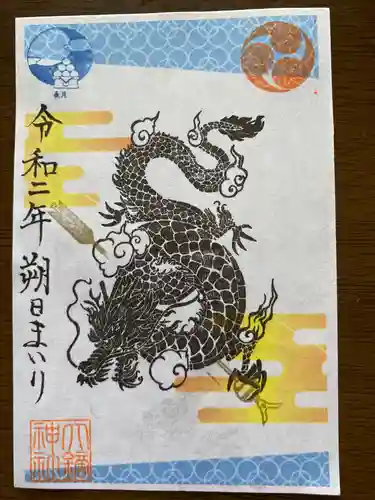 長月
令和二年 朔日まいり
神社